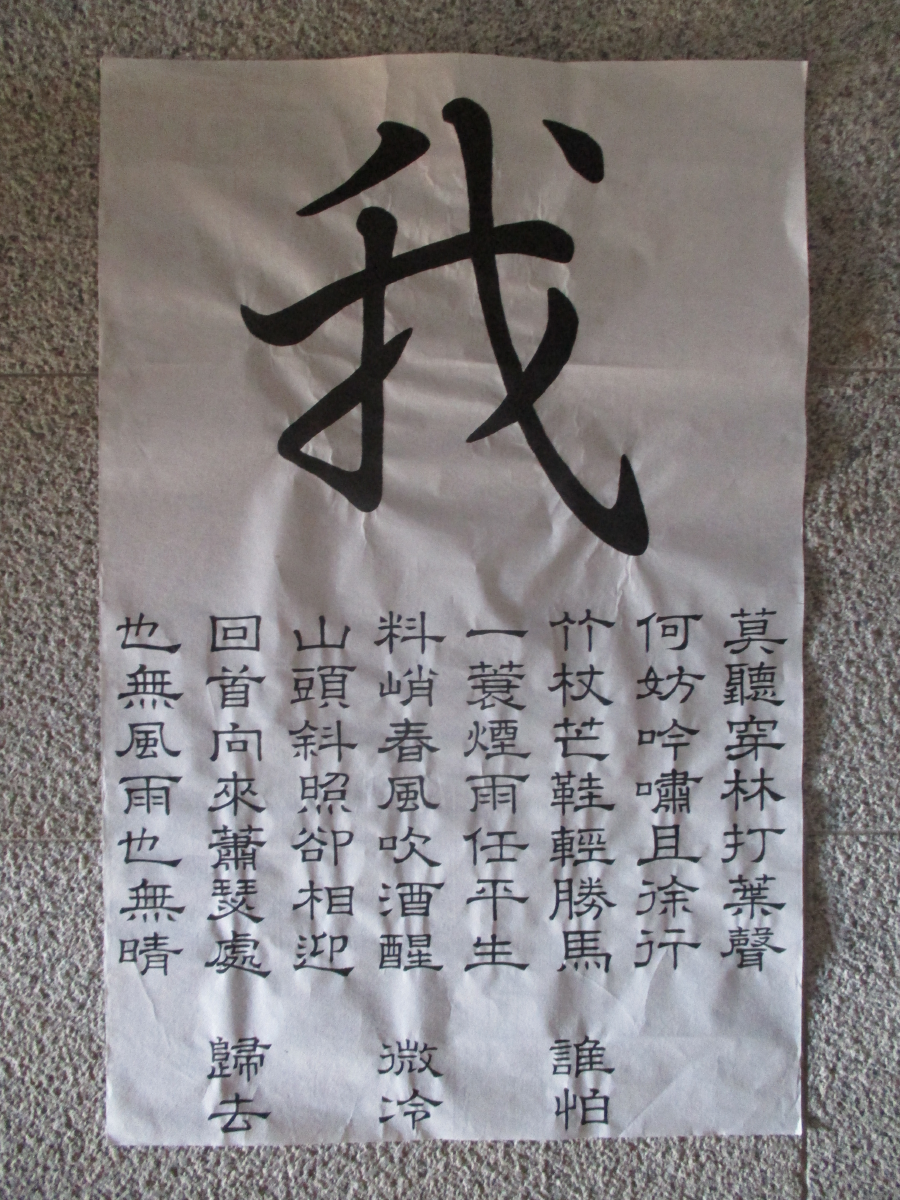 我
莫聽穿林打葉聲
何妨吟嘯且徐行
竹杖芒鞋輕勝馬 誰怕
一蓑煙雨任平生
料峭春風吹酒醒 微冷
山頭斜照卻相迎
回首向來蕭瑟處 歸去
也無風雨也無晴